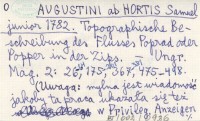 O AUGUSTINI ab HORTIS Samuel
junior 1782. Topographische Be-
schreibung des Flusses Poprad oder
Popper in der Zips. Ungr.
Mag. 2: 26, 175, 367, 475-498.
(Uwaga: mylna jest wiadomość
jakoby ta praca ukazała się też
w Privileg. Anzeigen